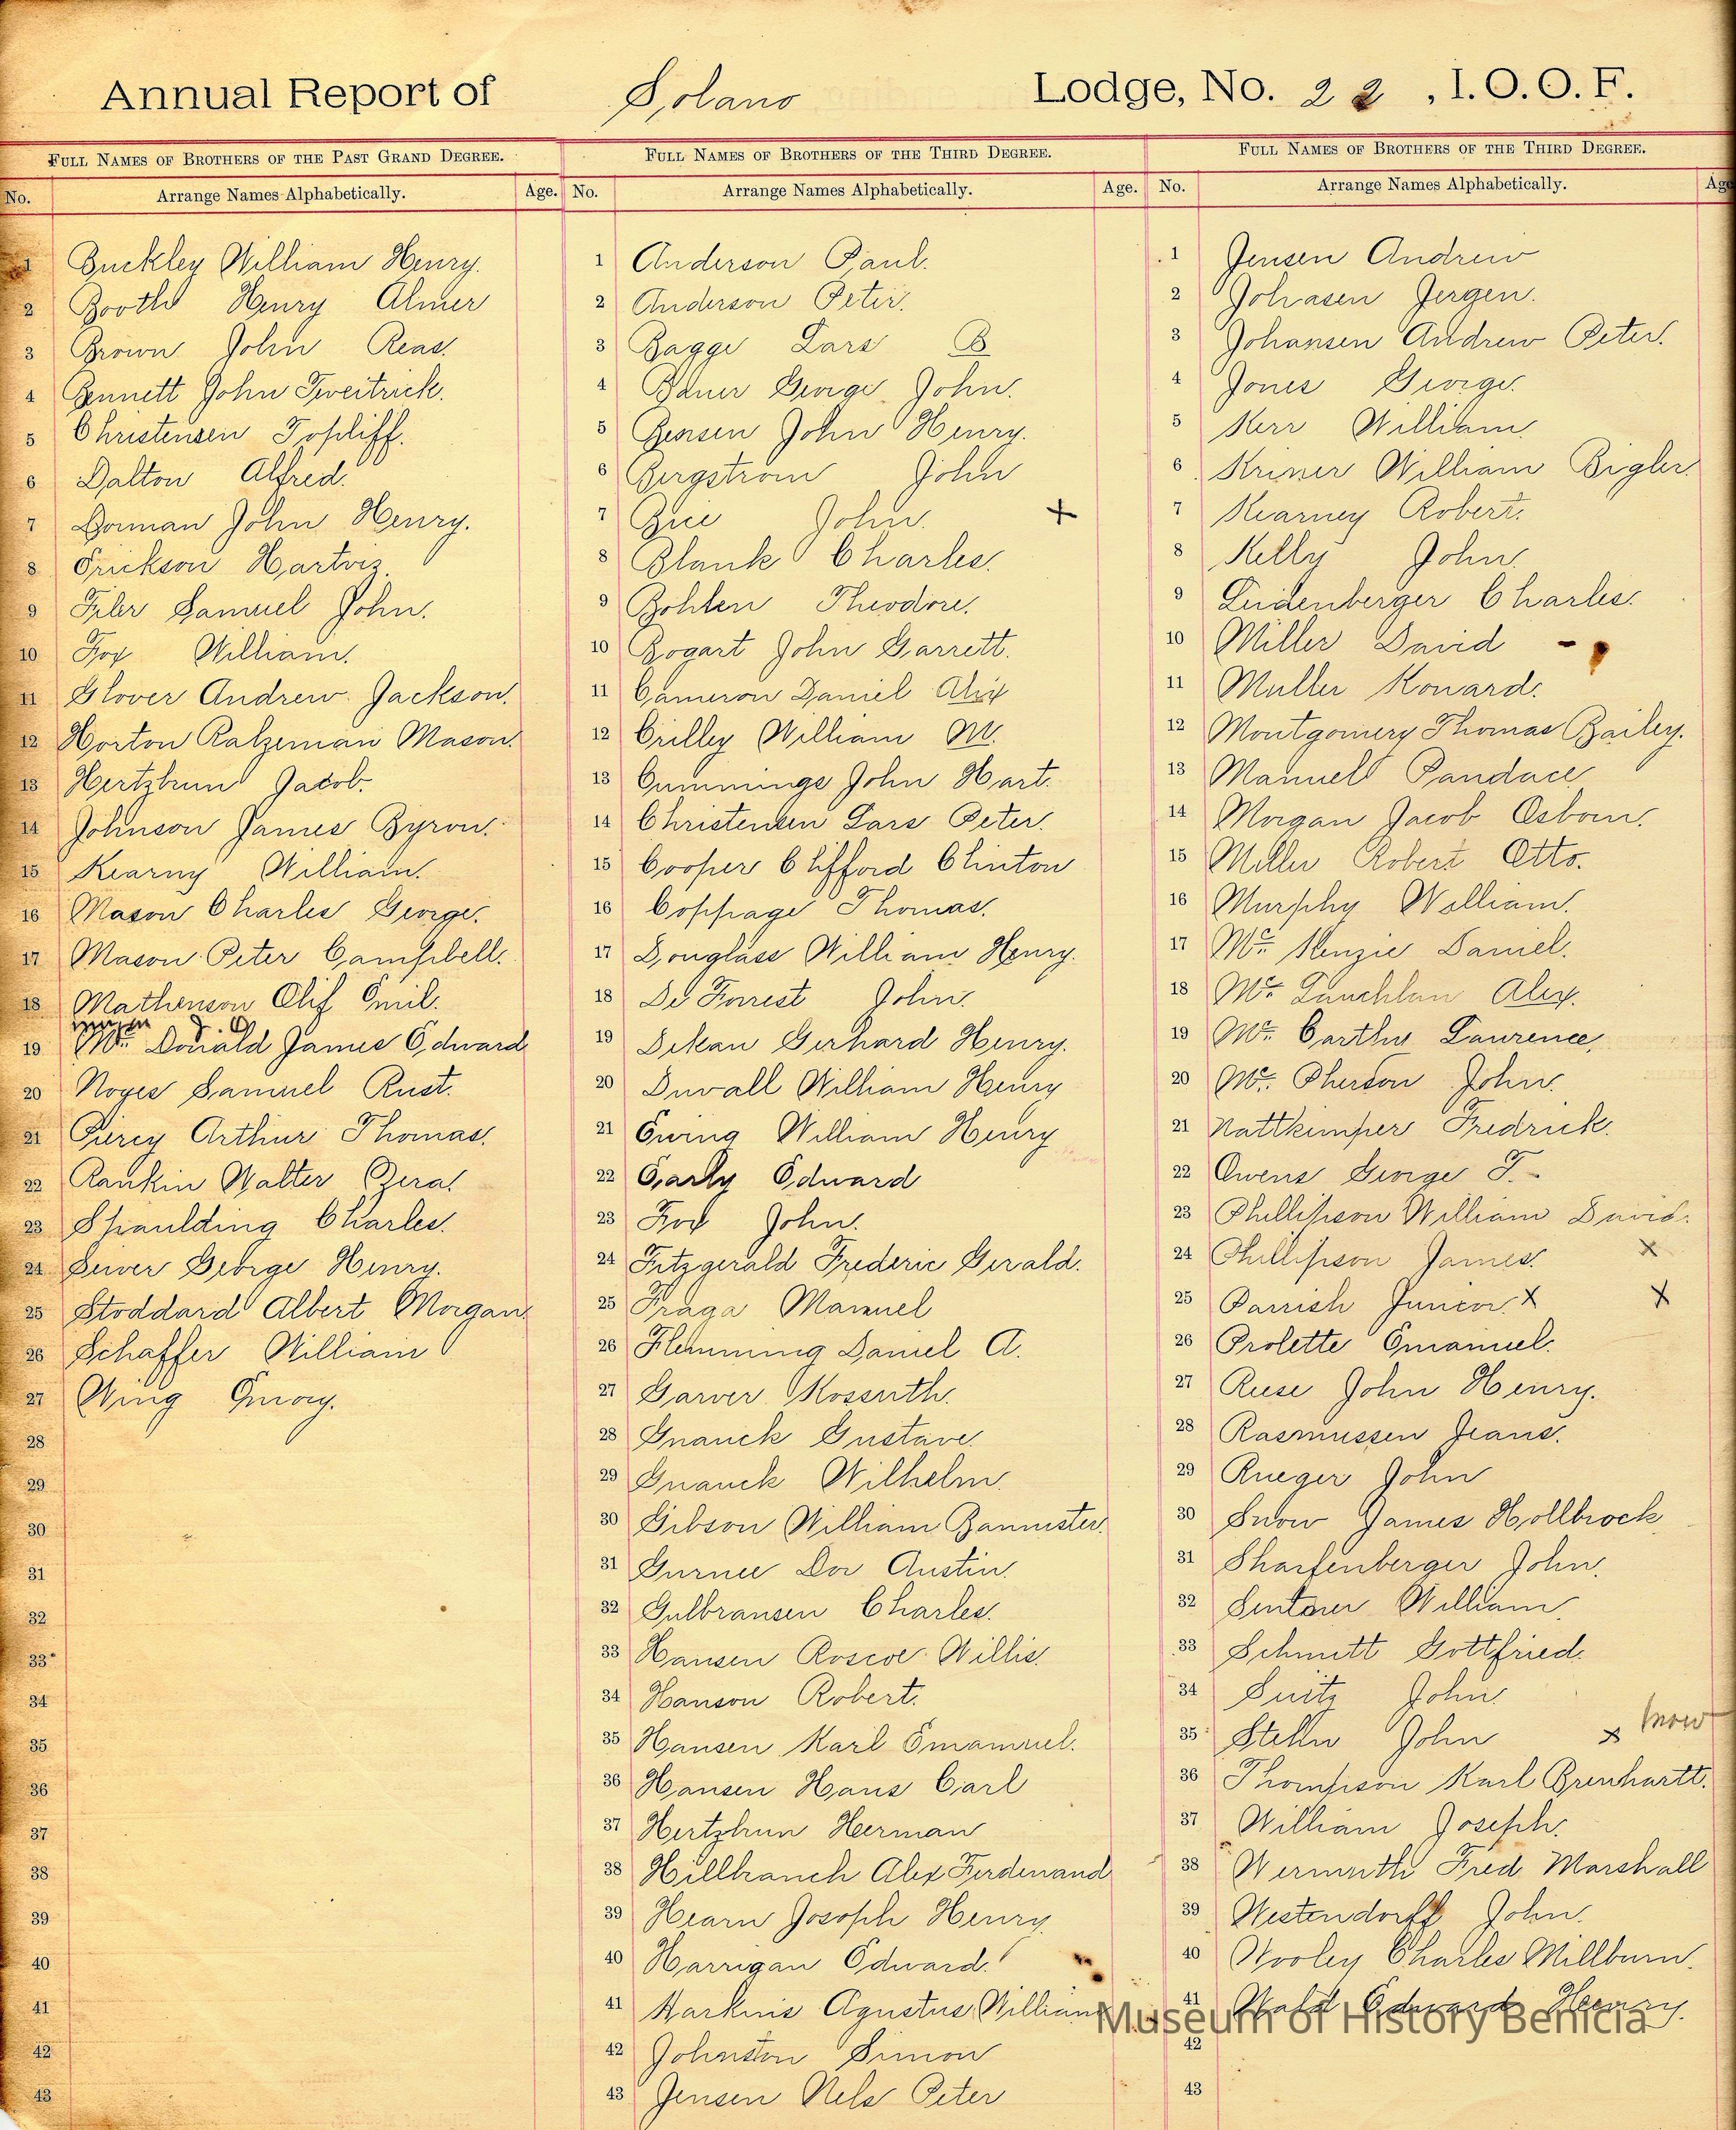 Annual Report of Solano Lodge, No. 22, I.O.O.F.
FULL NAMES OF BROTHERS OF THE PAST GRAND DEGREE.
No. Arrange Names Alphabetically. Age.
1 Buckley William Henry.
2 Booth Henry Almer
3 Brown John Reas.
4 Bennett John
5 Christensen Topliff.
6 Dalton Alfred.
7 Dorman John Henry.
8 Erickson Hartvig.
9 Filer Samuel John.
10 Fox William.
11 Glover Andrew Jackson.
12 Horton Mason.
13 Hertzbrun Jacob.
14 Johnson James Byron.
15 Kearny William.
16 Mason Charles George.
17 Mason Peter Campbell.
18 Mathenson Olif Emil.
19 Mc. Donald James Edward
20 Noyes Samuel Rust.
21 Piercy Arthur Thomas.
22 Rankin Walter Ezra.
23 Spaulding Charles.
24 George Henry.
25 Stoddard Albert Morgan.
26 Schaffer William
27 Wing Emory.
28
29
30
31
32
33
34
35
36
37
38
39
40
41
42
43
FULL NAMES OF BROTHERS OF THE THIRD DEGREE.
No. Arrange Names Alphabetically. Age.
1 Anderson Paul.
2 Anderson Peter.
3 Bagge Lars B
4 George John.
5 Bensen John Henry.
6 Bergstrom John
7 Bice John. x
8 Blank Charles.
9 Bohlen Theodore.
10 Bogart John Garrett.
11 Cameron Daniel Alix
12 Crilley William M.
13 Cummings John Hart.
14 Christensen Lars Peter.
15 Cooper Clifford Clinton
16 Coppage Thomas.
17 Douglass William Henry.
18 De Forrest John.
19 Dekan Gerhard Henry.
20 Duvall William Henry
21 Ewing William Henry
22 Early Edward
23 Fox John.
24 Fitzgerald Frederic Gerald.
25 Fraga Manuel
26 Flemming Daniel A.
27 Garver Kossuth.
28 Gnauck Gustave.
29 Gnauck Wilhelm.
30 Gibson William Bannister.
31 Gurnee Dor Austin.
32 Gulbransen Charles.
33 Hansen Roscoe Willis.
34 Hanson Robert.
35 Hansen Karl Emamuel.
36 Hansen Hans Carl
37 Hertzbrun Herman
38 Hillbranch Alex Ferdenand
39 Hearn Josoph Henry.
40 Harrigan Edward.
41 Harkins Agustus William
42 Johnston Simon
43 Jensen Nels Peter
FULL NAMES OF BROTHERS OF THE THIRD DEGREE.
No. Arrange Names Alphabetically. Age
1 Jensen Andrew
2 Johasen Jergen.
3 Johansen Andrew Peter.
4 Jones George.
5 Kerr William.
6 Kriner William Bigler.
7 Kearney Robert.
8 Kelly John.
9 Leidenberger Charles.
10 Miller David
11 Muller Konard.
12 Montgomery Thomas Bailey.
13 Manuell Pandace
14 Morgan Jacob Osborn.
15 Miller Robert Otto.
16 Murphy William.
17 Mc. Kenzie Daniel.
18 Mc. Lauchlan Alex.
19 Mc. Carthy Laurence.
20 Mc. Pherson John.
21 Nattkemper Fredrick.
22 Owens George T.
23 Phillipson William David.
24 Phillipson James. x
25 Parrish Junior. x x
26 Prolette Emanuel.
27 Ruse John Henry.
28 Rasmussen Jeans.
29 Rueger John
30 Snow James Hollbrock
31 Sharfenberger John.
32 William.
33 Schmitt Gottfried.
34 Suitz John.
35 John x
36 Thompson Karl Brenhartt.
37 William Joseph.
38 Wermuth Fred Marshall
39 Westendorff John.
40 Wooley Charles Millburn.
41 Wald Edward Henry.
42
43
Museum of History Benicia